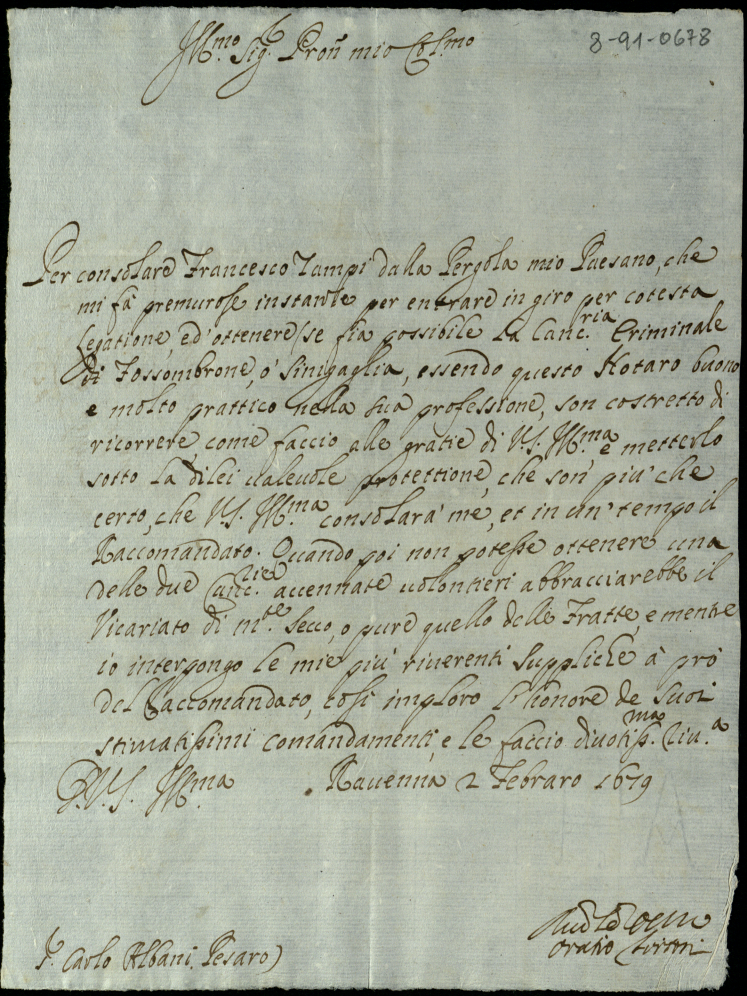 8-91-0678
Ill.mo Sig.r Pron mio Col.mo
Per consolare Francesco Zampi dalla Pergola mio Paesano, che
mi fà premurose instante per entrare in giro per cotesta
Legatione, ed'ottenere, se fia possibile la Canc.ria Criminale
di Fossombrone, ò Sinigaglia, essendo questo Notaro buono
e molto prattico nella sua professione, son costretto di
ricorrere, come faccio alle gratie di V.S. Ill.ma e metterlo
sotto la dilei valevole protettione, che son più che
certo, che V.S. Ill.ma consolarà me, et in un'tempo il
Raccomandato. Quando poi non potesse ottenere una
delle due Canc.lie accennate volontieri abbracciarebbe il
Vicariato di m.te Secco, o pure quello delle Fratte, e mentre
io interpongo le mie più riverenti suppliche à prò
del Raccomandato, così imploro l'honore de suoi
stimatissimi comandamenti, e le faccio divotiss.ma riv.a
D.V.S. Ill.ma Ravenna 2 Febraro 1679
S.r Carlo Albani. Pesaro)
Oratio